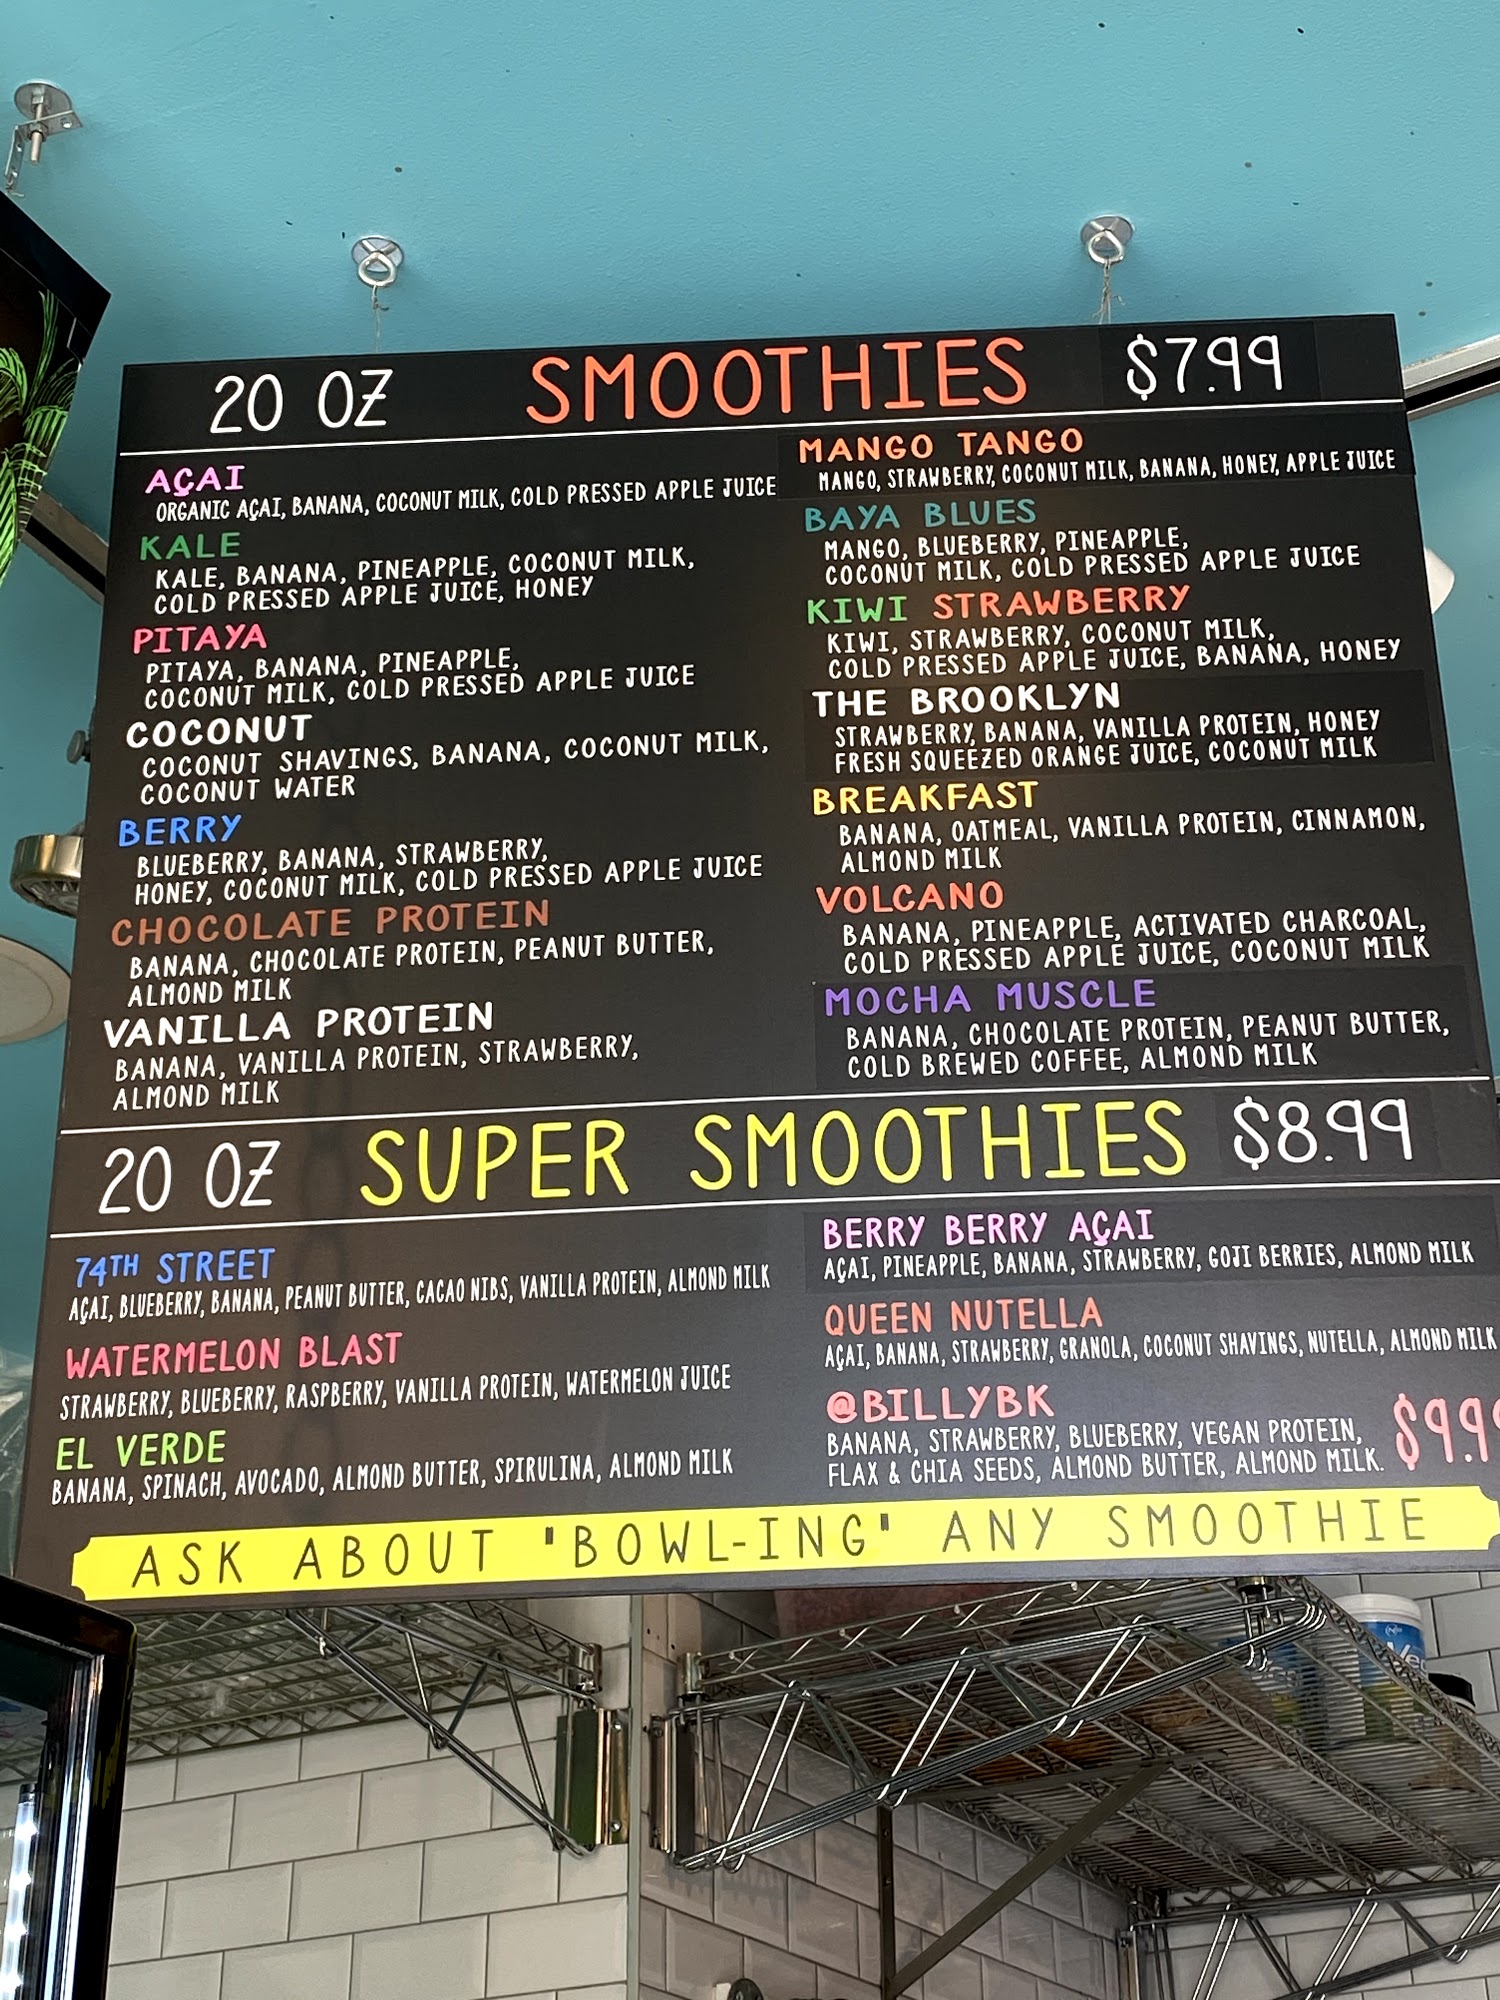 20 OZ SMOOTHIES $7.99
AÇAI
ORGANIC AÇAI, BANANA, COCONUT MILK, COLD PRESSED APPLE JUICE
KALE
KALE, BANANA, PINEAPPLE, COCONUT MILK,
COLD PRESSED APPLE JUICE, HONEY
PITAYA
PITAYA, BANANA, PINEAPPLE,
COCONUT MILK, COLD PRESSED APPLE JUICE
COCONUT
COCONUT SHAVINGS, BANANA, COCONUT MILK,
COCONUT WATER
BERRY
BLUEBERRY, BANANA, STRAWBERRY,
HONEY, COCONUT MILK, COLD PRESSED APPLE JUICE
CHOCOLATE PROTEIN
BANANA, CHOCOLATE PROTEIN, PEANUT BUTTER,
ALMOND MILK
VANILLA PROTEIN
BANANA, VANILLA PROTEIN, STRAWBERRY,
ALMOND MILK
MANGO TANGO
MANGO, STRAWBERRY, COCONUT MILK, BANANA, HONEY, APPLE JUICE
BAYA BLUES
MANGO, BLUEBERRY, PINEAPPLE,
COCONUT MILK, COLD PRESSED APPLE JUICE
KIWI STRAWBERRY
KIWI, STRAWBERRY, COCONUT MILK,
COLD PRESSED APPLE JUICE, BANANA, HONEY
THE BROOKLYN
STRAWBERRY, BANANA, VANILLA PROTEIN, HONEY
FRESH SQUEEZED ORANGE JUICE, COCONUT MILK
BREAKFAST
BANANA, OATMEAL, VANILLA PROTEIN, CINNAMON,
ALMOND MILK
VOLCANO
BANANA, PINEAPPLE, ACTIVATED CHARCOAL,
COLD PRESSED APPLE JUICE, COCONUT MILK
MOCHA MUSCLE
BANANA, CHOCOLATE PROTEIN, PEANUT BUTTER,
COLD BREWED COFFEE, ALMOND MILK
20 OZ SUPER SMOOTHIES $8.99
74TH STREET
AÇAI, BLUEBERRY, BANANA, PEANUT BUTTER, CACAO NIBS, VANILLA PROTEIN, ALMOND MILK
WATERMELON BLAST
STRAWBERRY, BLUEBERRY, RASPBERRY, VANILLA PROTEIN, WATERMELON JUICE
EL VERDE
BANANA, SPINACH, AVOCADO, ALMOND BUTTER, SPIRULINA, ALMOND MILK
BERRY BERRY AÇAI
AÇAI, PINEAPPLE, BANANA, STRAWBERRY, GOJI BERRIES, ALMOND MILK
QUEEN NUTELLA
AÇAI, BANANA, STRAWBERRY, GRANOLA, COCONUT SHAVINGS, NUTELLA, ALMOND MILK
@BILLYBK
BANANA, STRAWBERRY, BLUEBERRY, VEGAN PROTEIN,
FLAX & CHIA SEEDS, ALMOND BUTTER, ALMOND MILK.
$9.9
ASK ABOUT "BOWL-ING" ANY SMOOTHIE